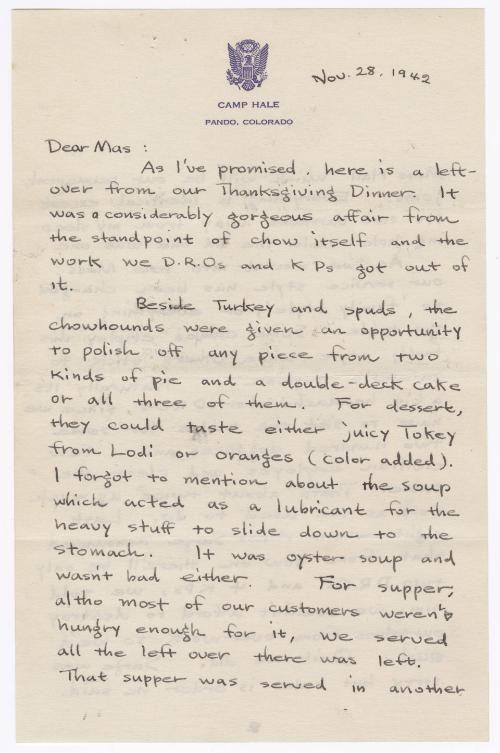 CAMP HALE
PANDO, COLORADO
Nov. 28, 1942
Dear Mas :
As I've promised, here is a left-
over from our Thanksgiving Dinner. It
was a considerably gorgeous affair from
the standpoint of chow itself and the
work we D.R.Os and K Ps got out of
it.
Beside Turkey and spuds, the
chowhounds were given an opportunity
to polish off any piece from two
kinds of pie and a double-deck cake
or all three of them. For dessert,
they could taste either juicy Tokey
from Lodi or oranges (color added).
I forgot to mention about the soup
which acted as a lubricant for the
heavy stuff to slide down to the
stomach. It was oyster soup and
wasnt bad either. For supper,
altho most of our customers weren't
hungry enough for it, we served
all the left over there was left.
That supper was served in another